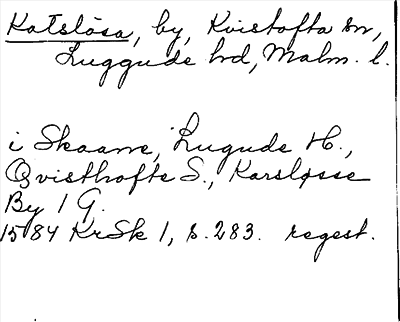 Katslösa, by, Kvistofta sn,
Luggude hd, Malm. l.
i Skaane, Lugude H.,
Qvisthofte S., Karsløsse
By 1 G.
1584 KrSk 1, s. 283. regest.